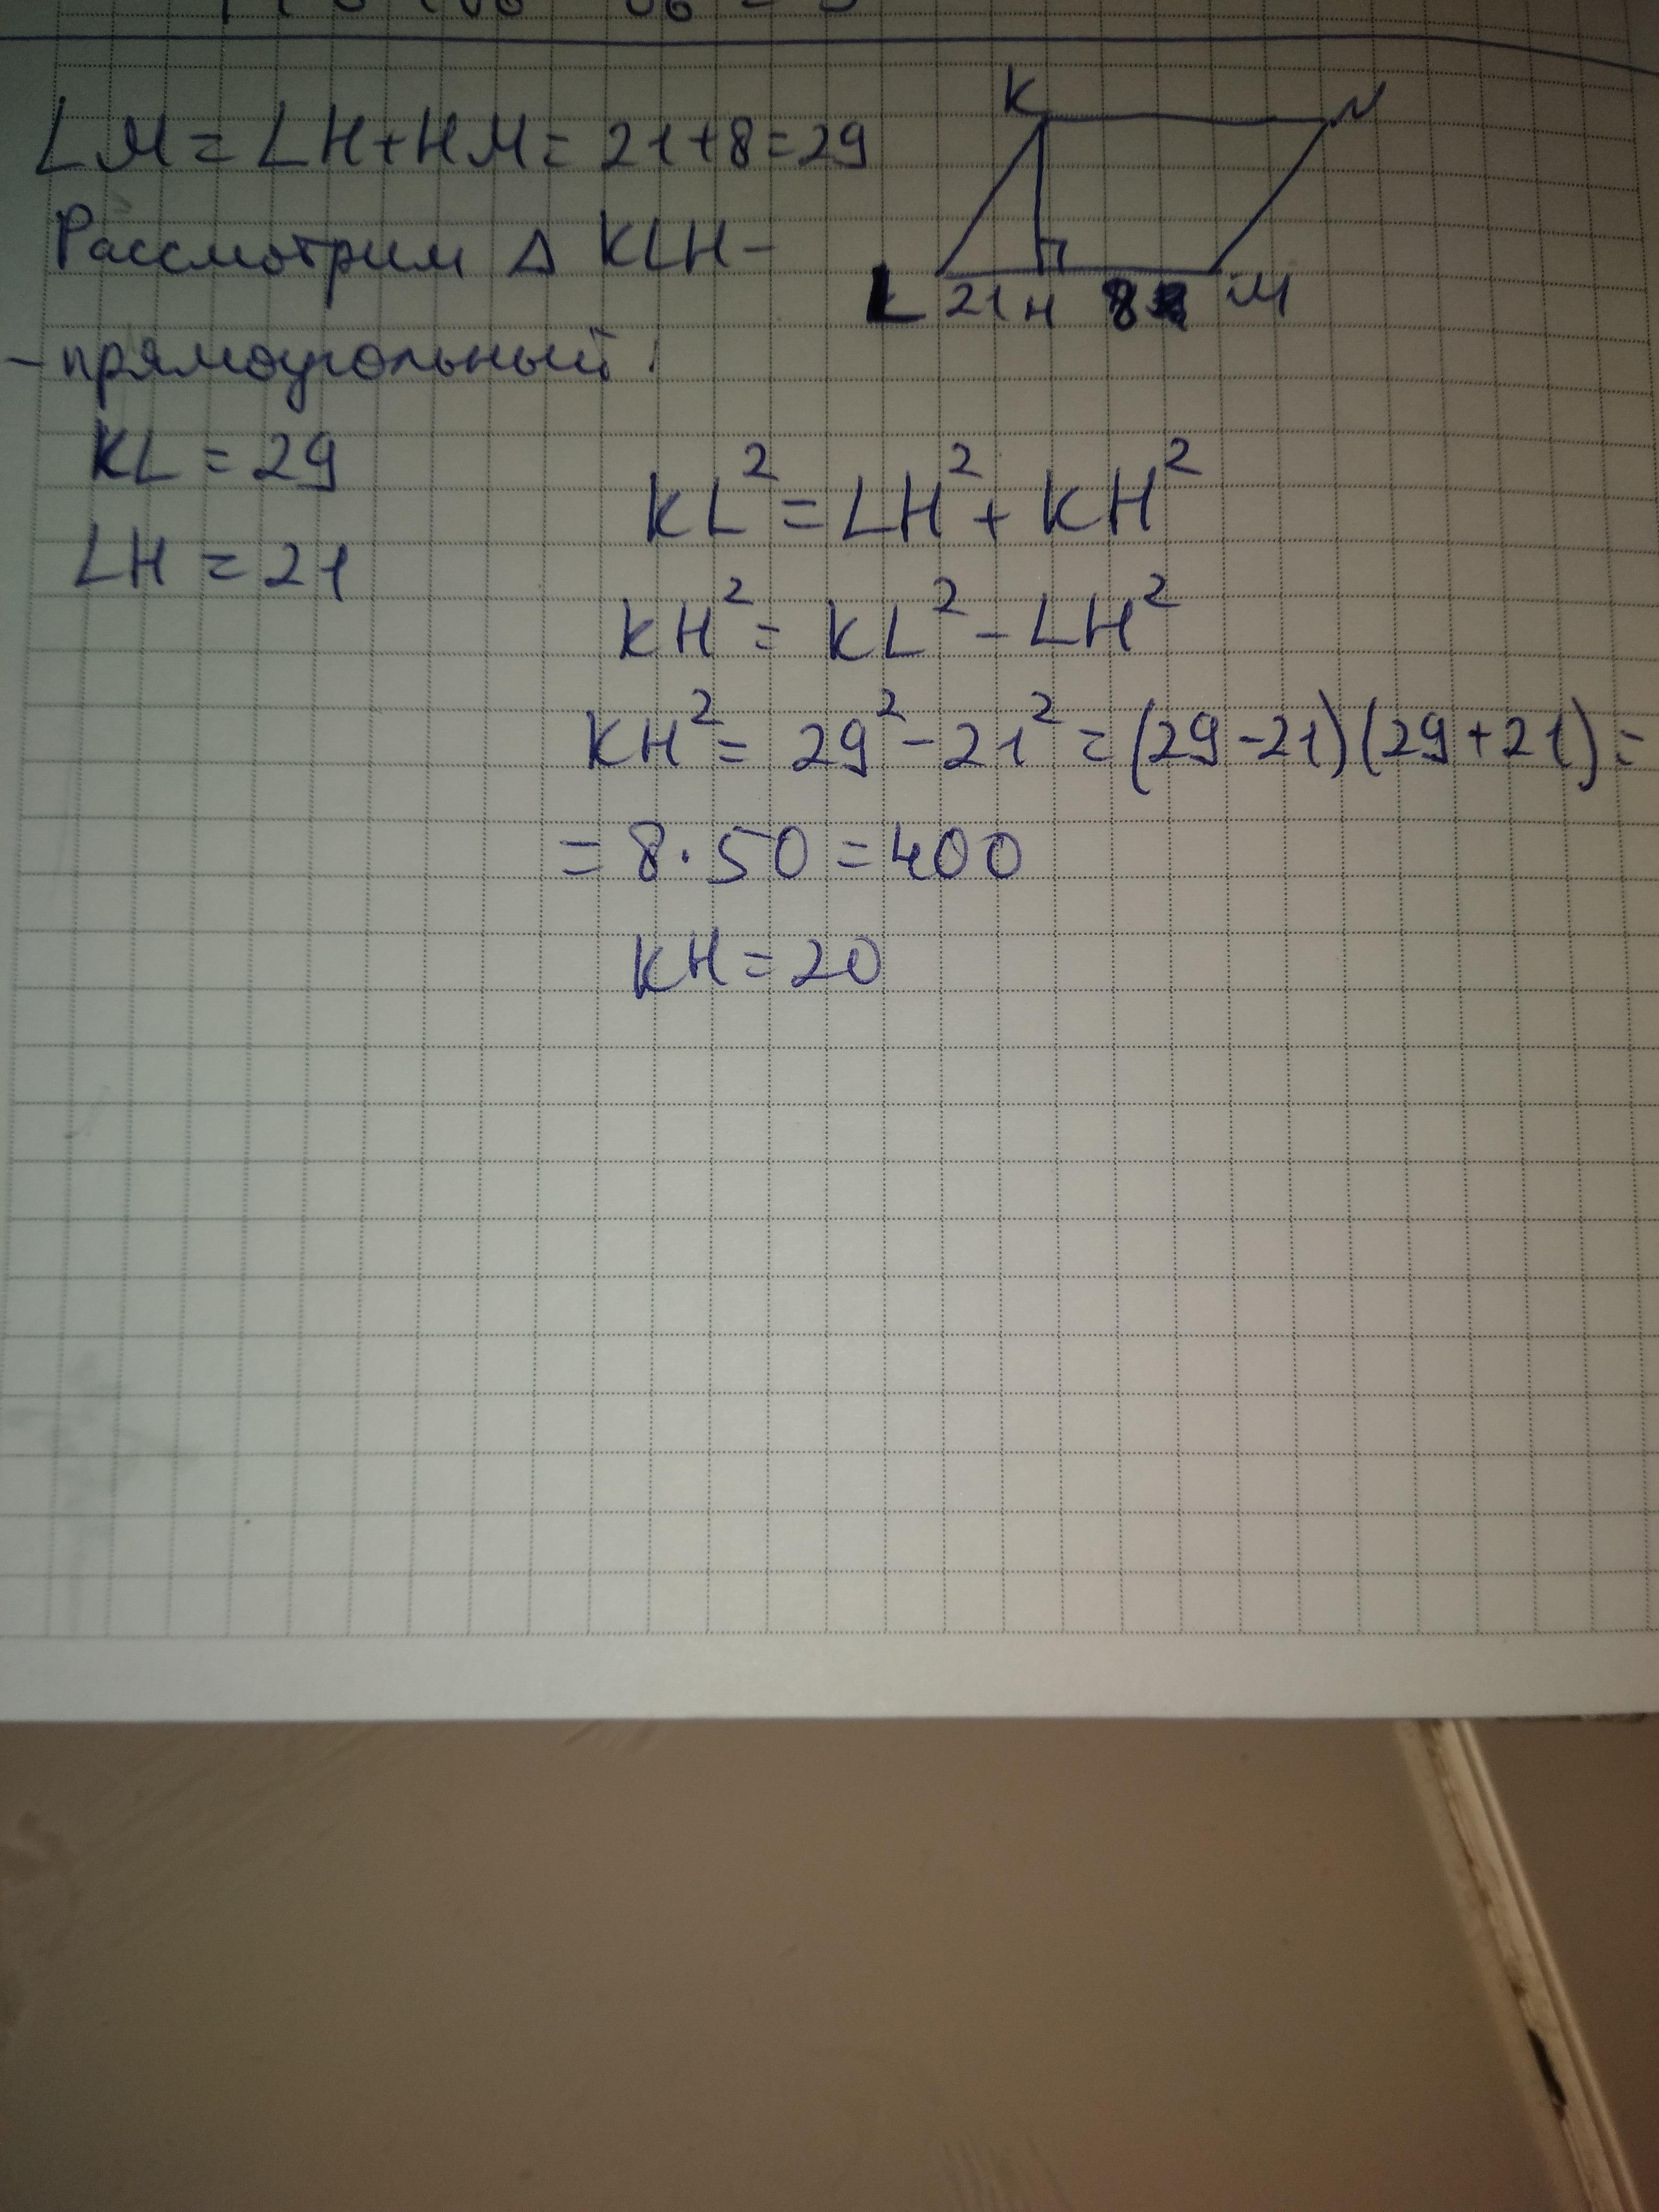 LM = LH+HM = 21+8=29
Рассмотрим Δ KLH -
- прямоугольный:
K
N
L 21 H 8 M
KL = 29
LH = 21
KL² = LH² + KH²
KH² = KL² - LH²
KH² = 29² - 21² = (29-21)(29+21) =
= 8·50 = 400
KH = 20